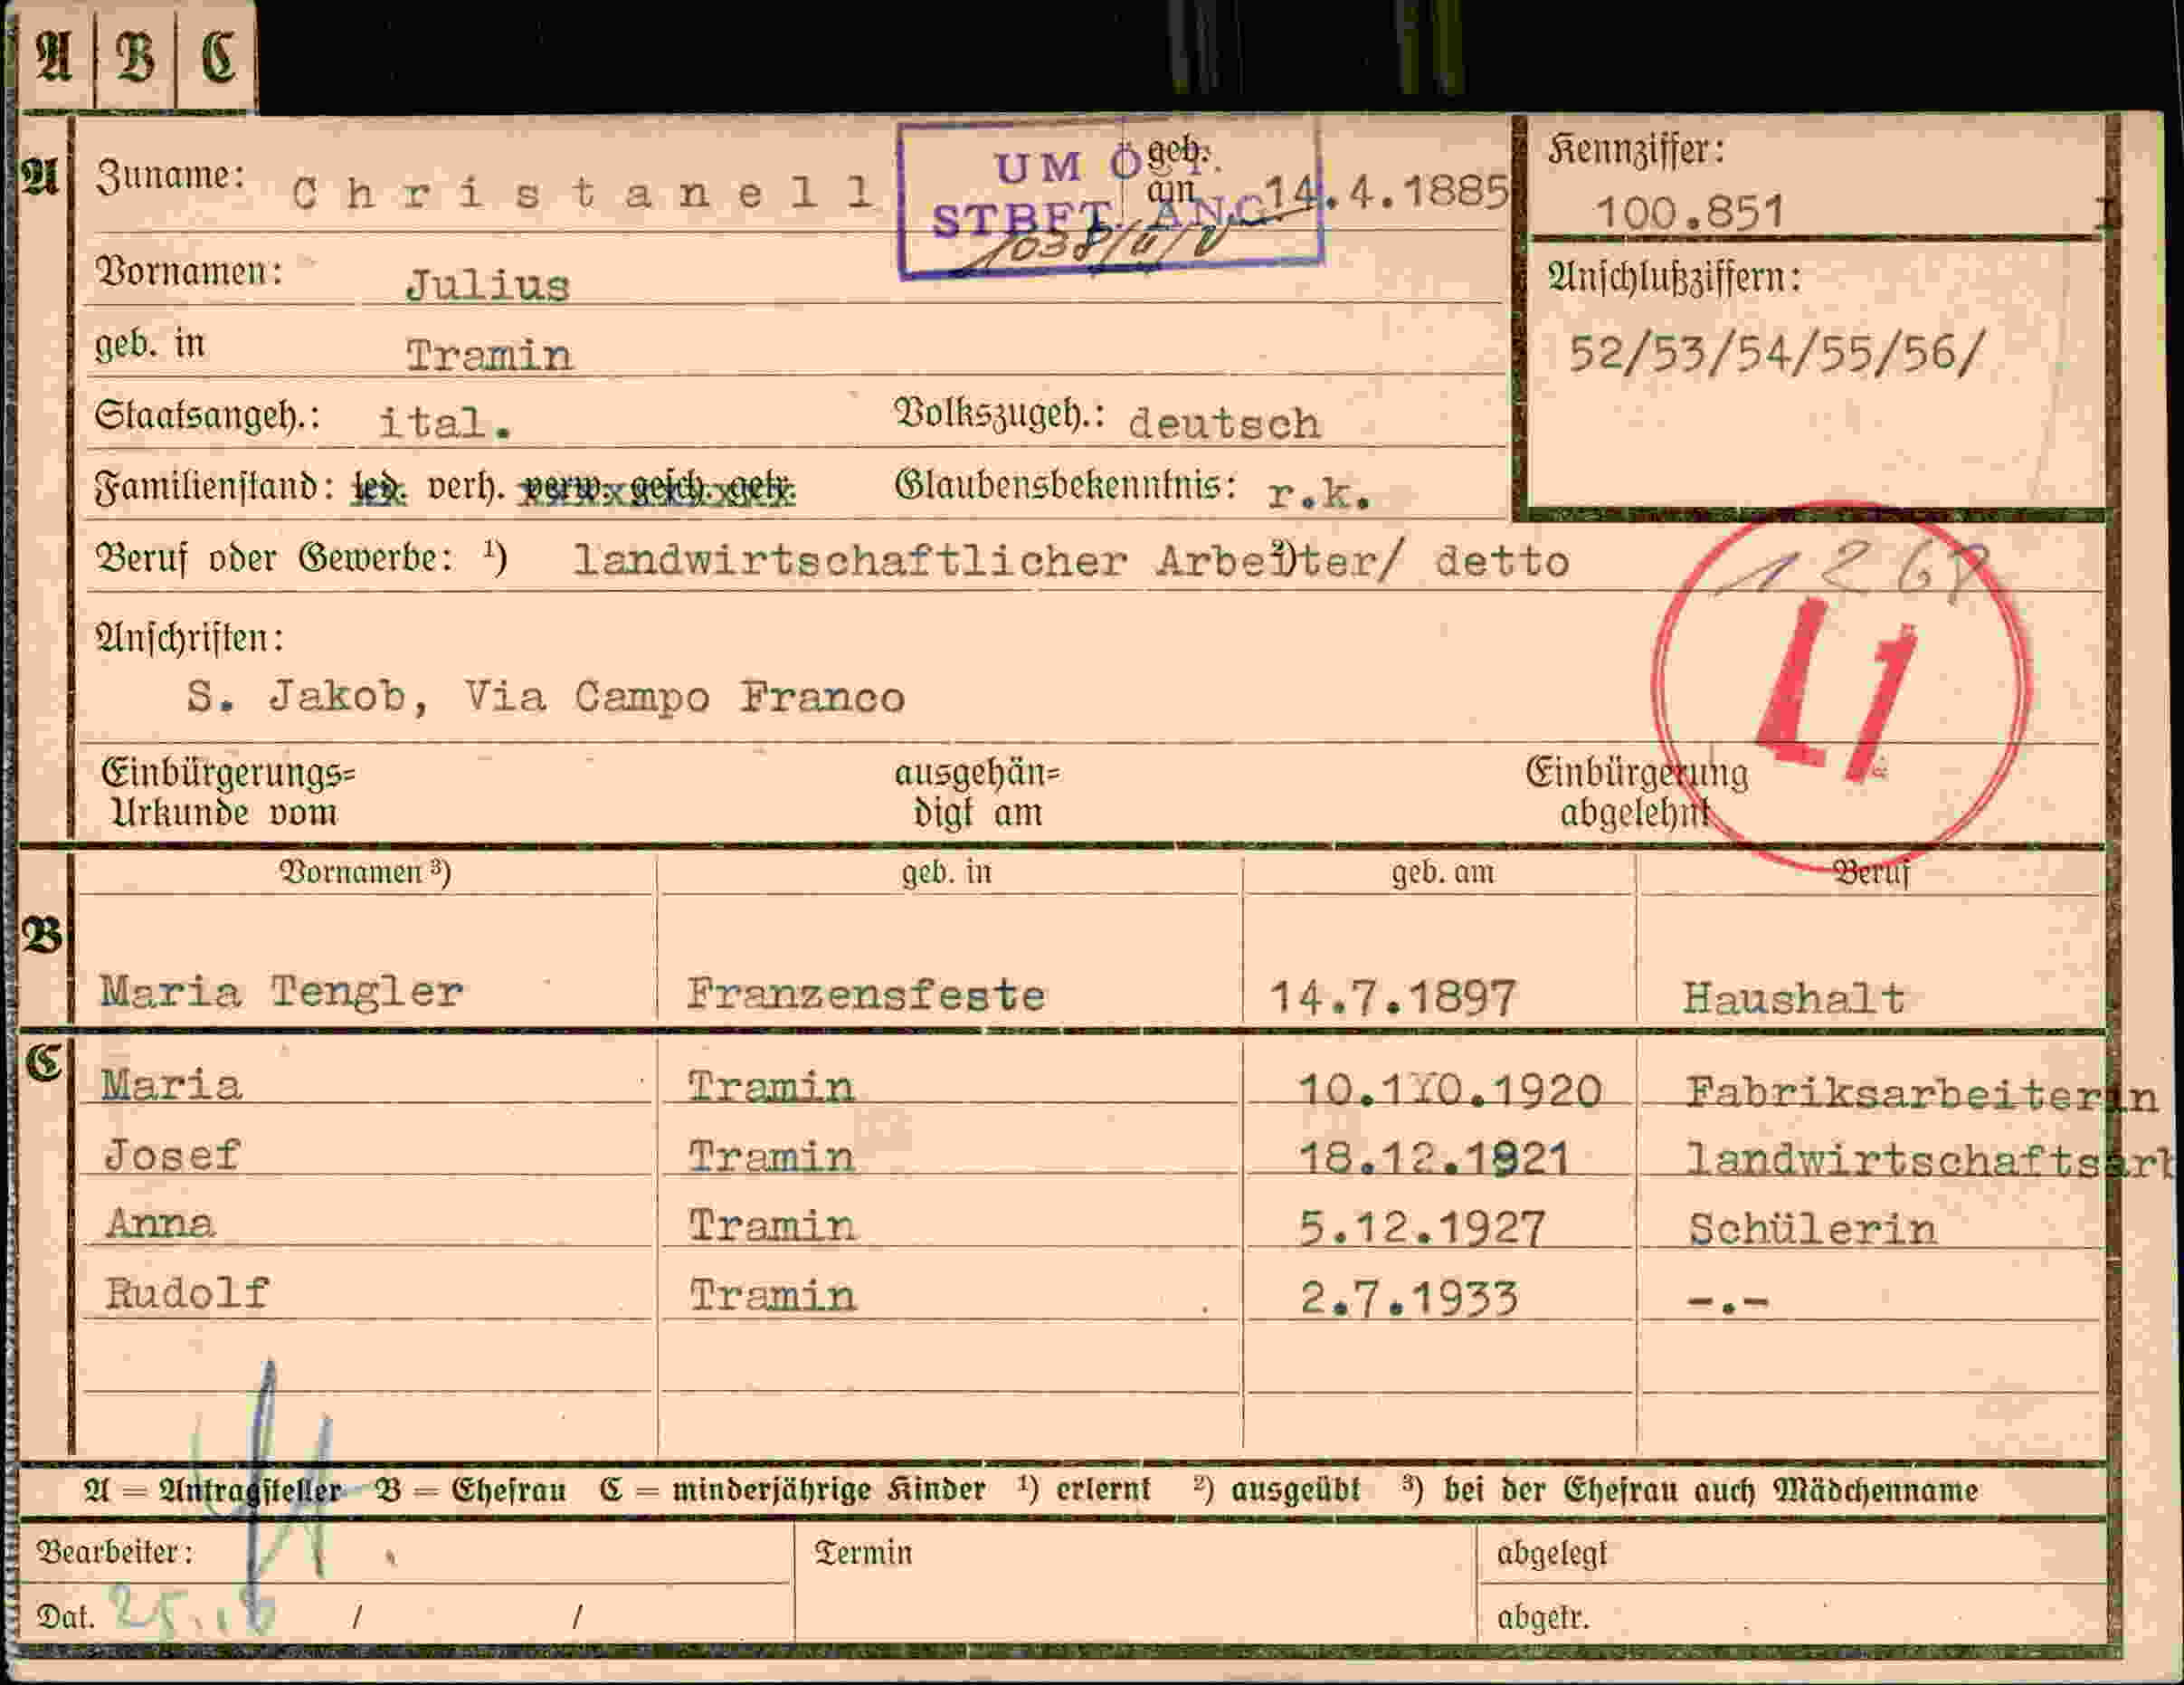 A B C
A Zuname: Christanell geb. am 14.4.1885
UM Ö
STBFT. ANG
Kennziffer:
100.851
Vornamen: Julius
Anschlußziffern:
52/53/54/55/56/
geb. in Tramin
Staatsangeh.: ital. Volkszugeh.: deutsch
Familienstand: led. verh. verw. gesch. getr. Glaubensbekenntnis: r.k.
Beruf oder Gewerbe: ¹) landwirtschaftlicher Arbeiter/ ²) detto
126
L1
Anschriften:
S. Jakob, Via Campo Franco
Einbürgerungs= ausgehän= Einbürgerung
Urkunde vom digt am abgelehnt
Vornamen ³) geb. in geb. am Beruf
B Maria Tengler Franzensfeste 14.7.1897 Haushalt
C Maria Tramin 10.10.1920 Fabriksarbeiterin
Josef Tramin 18.12.1921 landwirtschaftsarb
Anna Tramin 5.12.1927 Schülerin
Rudolf Tramin 2.7.1933 -.-
A = Antragsteller B = Ehefrau C = minderjährige Kinder ¹) erlernt ²) ausgeübt ³) bei der Ehefrau auch Mädchenname
Bearbeiter: Termin abgelegt
Dat. / / abgetr.